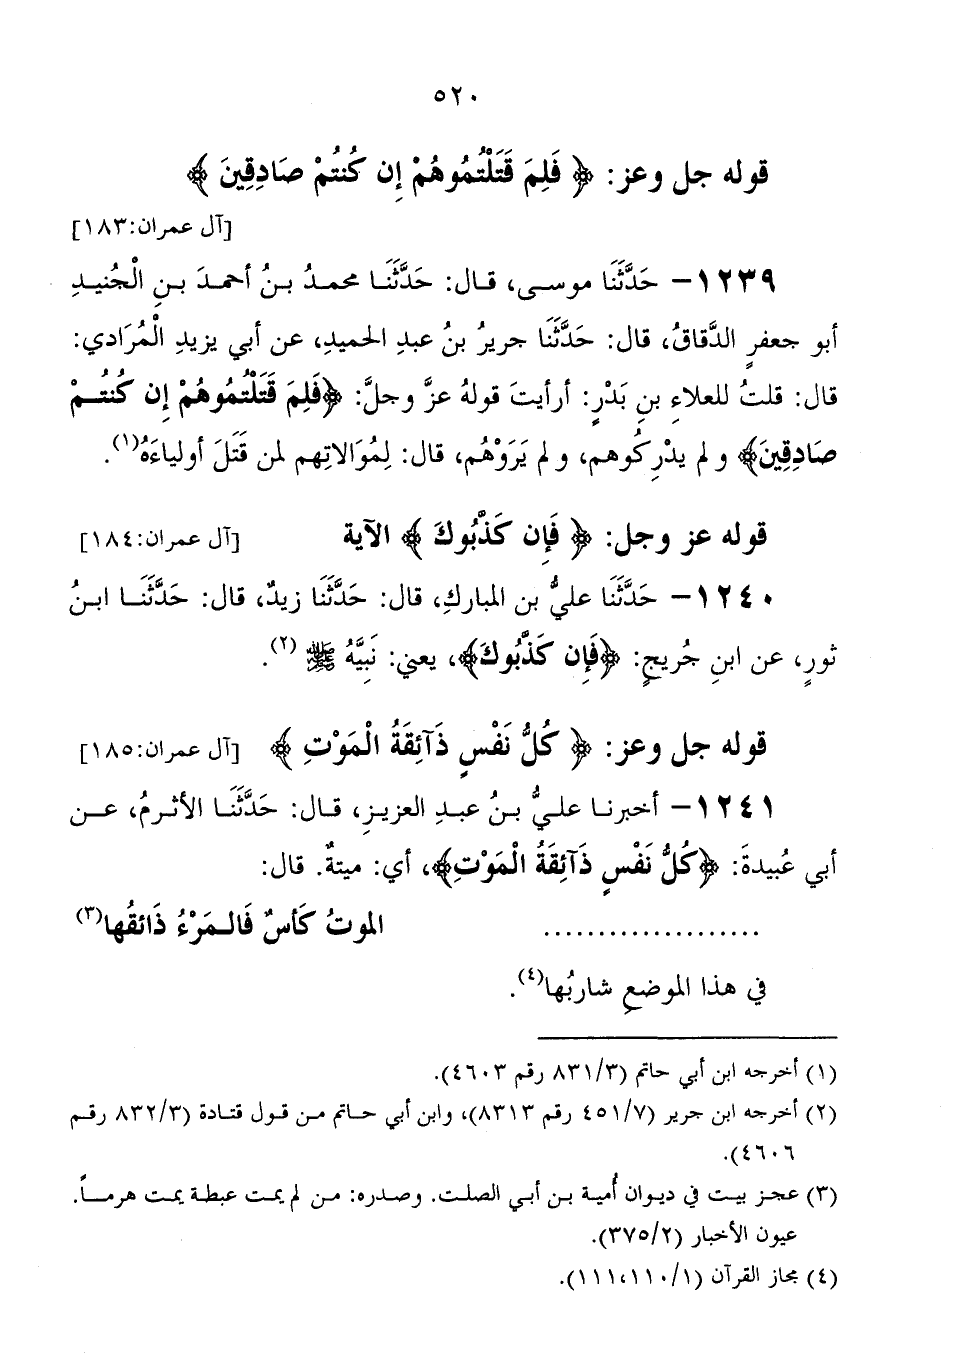 ٥٢٠
قوله جل وعز: ﴿ فَلِمَ قَتَلْتُمُوهُمْ إِن كُنتُمْ صَادِقِينَ ﴾
[آل عمران:١٨٣]
١٢٣٩- حَدَّثَنَا موسى، قال: حَدَّثَنَا محمدُ بنُ أحمدَ بنِ الْجُنيدِ
أبو جعفرٍ الدَّقاقُ، قال: حَدَّثَنَا جريرُ بنُ عبدِ الحميدِ، عن أبي يزيدِ الْمُرَادي:
قال: قلتُ للعلاءِ بنِ بَدْرٍ: أرأيتَ قولهُ عزَّ وجلَّ: ﴿فَلِمَ قَتَلْتُمُوهُمْ إِن كُنتُمْ
صَادِقِينَ﴾ و لم يدْرِكُوهم، و لم يَرَوْهُم، قال: لِمُوَالاتِهم لمن قَتَلَ أولياءَهُ(١).
قوله عز وجل: ﴿ فَإِن كَذَّبُوكَ ﴾ الآية [آل عمران:١٨٤]
١٢٤٠- حَدَّثَنَا عليُّ بن المباركِ، قال: حَدَّثَنَا زيدٌ، قال: حَدَّثَنَا ابنُ
ثورٍ، عن ابنِ جُريجٍ: ﴿فَإِن كَذَّبُوكَ﴾، يعني: نَبِيَّهُ ﷺ (٢).
قوله جل وعز: ﴿ كُلُّ نَفْسٍ ذَآئِقَةُ الْمَوْتِ ﴾ [آل عمران:١٨٥]
١٢٤١- أخبرنا عليُّ بنُ عبدِ العزيزِ، قال: حَدَّثَنَا الأثرمُ، عن
أبي عُبيدةَ: ﴿كُلُّ نَفْسٍ ذَآئِقَةُ الْمَوْتِ﴾، أي: ميتةٌ. قال:
................... الموتُ كَأسٌ فَالمَرْءُ ذَائقُها(٣)
في هذا الموضعِ شاربُها(٤).
(١) أخرجه ابن أبي حاتم (٨٣١/٣ رقم ٤٦٠٣).
(٢) أخرجه ابن جرير (٤٥١/٧ رقم ٨٣١٣)، وابن أبي حاتم من قول قتادة (٨٣٢/٣ رقم
٤٦٠٦).
(٣) عجز بيت في ديوان أُمية بن أبي الصلت. وصدره: من لم يمت عبطة يمت هرماً.
عيون الأخبار (٣٧٥/٢).
(٤) مجاز القرآن (١١١،١١٠/١).